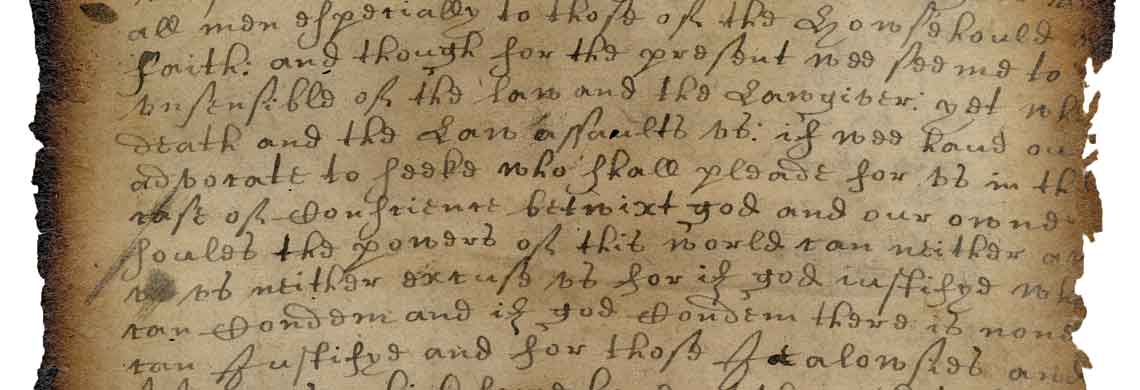 all men especially to those of the Howsehould
faith: and though for the present wee seeme to
vnsensible of the law and the Lawgiver: yet wh
death and the Law assaults vs: if wee haue ou
advocate to seeke who shall pleade for vs in th
case of Conscience betwixt god and our owne
soules the powers of this world can neither a
vs neither excuse vs for if god iustifye wh
can Condem and if god Condem there is none
can Justifye and for those Jealowsies and